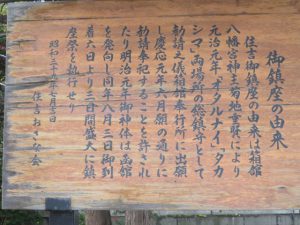 御鎮座の由来
住吉御鎮座の由来は箱館
八幡宮神主菊地重賢により
元治元年「オタルナイ」「タカ
シマ」両場所の総鎮守として
勧請之儀箱館奉行所に出願
し慶応元年六月願の通りに
勧請奉祀することを許され
たり明治元年御神体は函館
を発向し同年八月三日御到
着六日より三日間盛大に鎮
座祭を執行せり
昭和三十八年七月
住吉おさな会